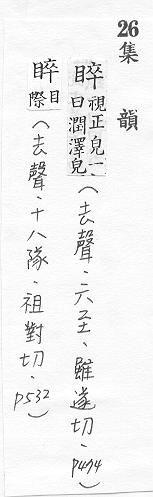 26集韻
睟視正皃一曰潤澤皃(去聲.六至.雖遂切.p474)
睟目際(去聲.十八隊.祖對切.p532)